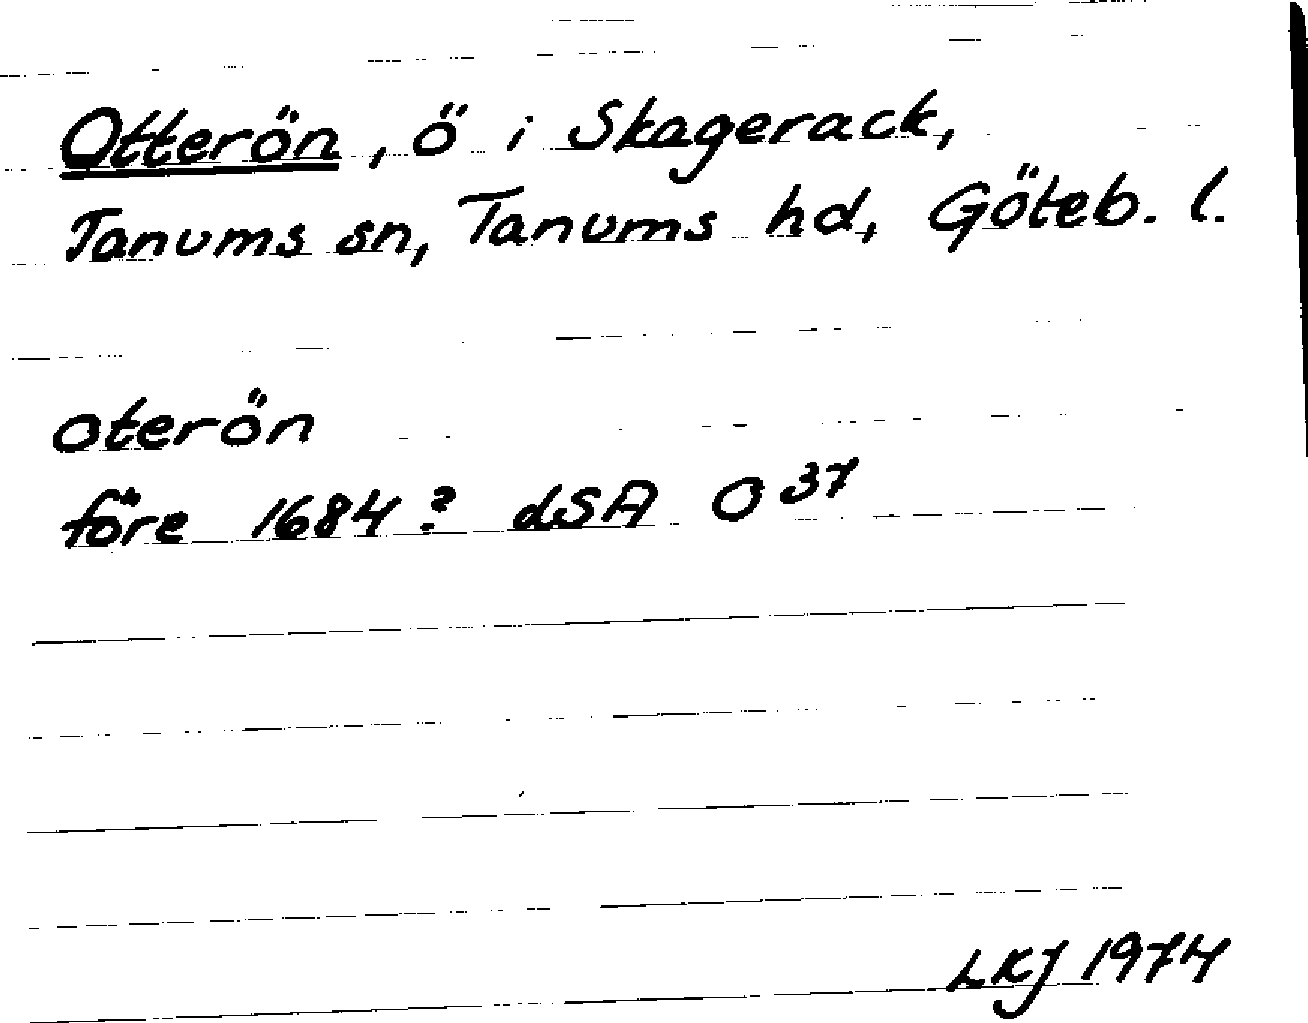 Otterön, ö i Skagerack,
Tanums sn, Tanums hd, Göteb. l.
oterön
före 1684? dSA O 37
LKJ 1974